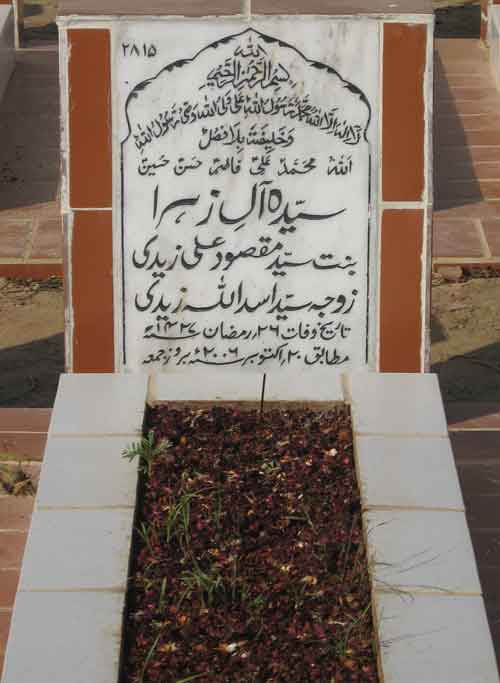 ۲۸۱۵
الله
بسم الله الرحمن الرحيم
لا اله الا الله محمد رسول الله علی ولی الله وصی رسول الله
و خلیفتہ بلا فصل
اللہ محمد علی فاطمہ حسن حسین
سیدہ آلِ زہرا
بنت سید مقصود علی زیدی
زوجہ سید اسد اللہ زیدی
تاریخ وفات ۲۶؍رمضان ۱۴۲۷ھ
مطابق ۲۰؍اکتوبر ۲۰۰۶ء بروز جمعہ